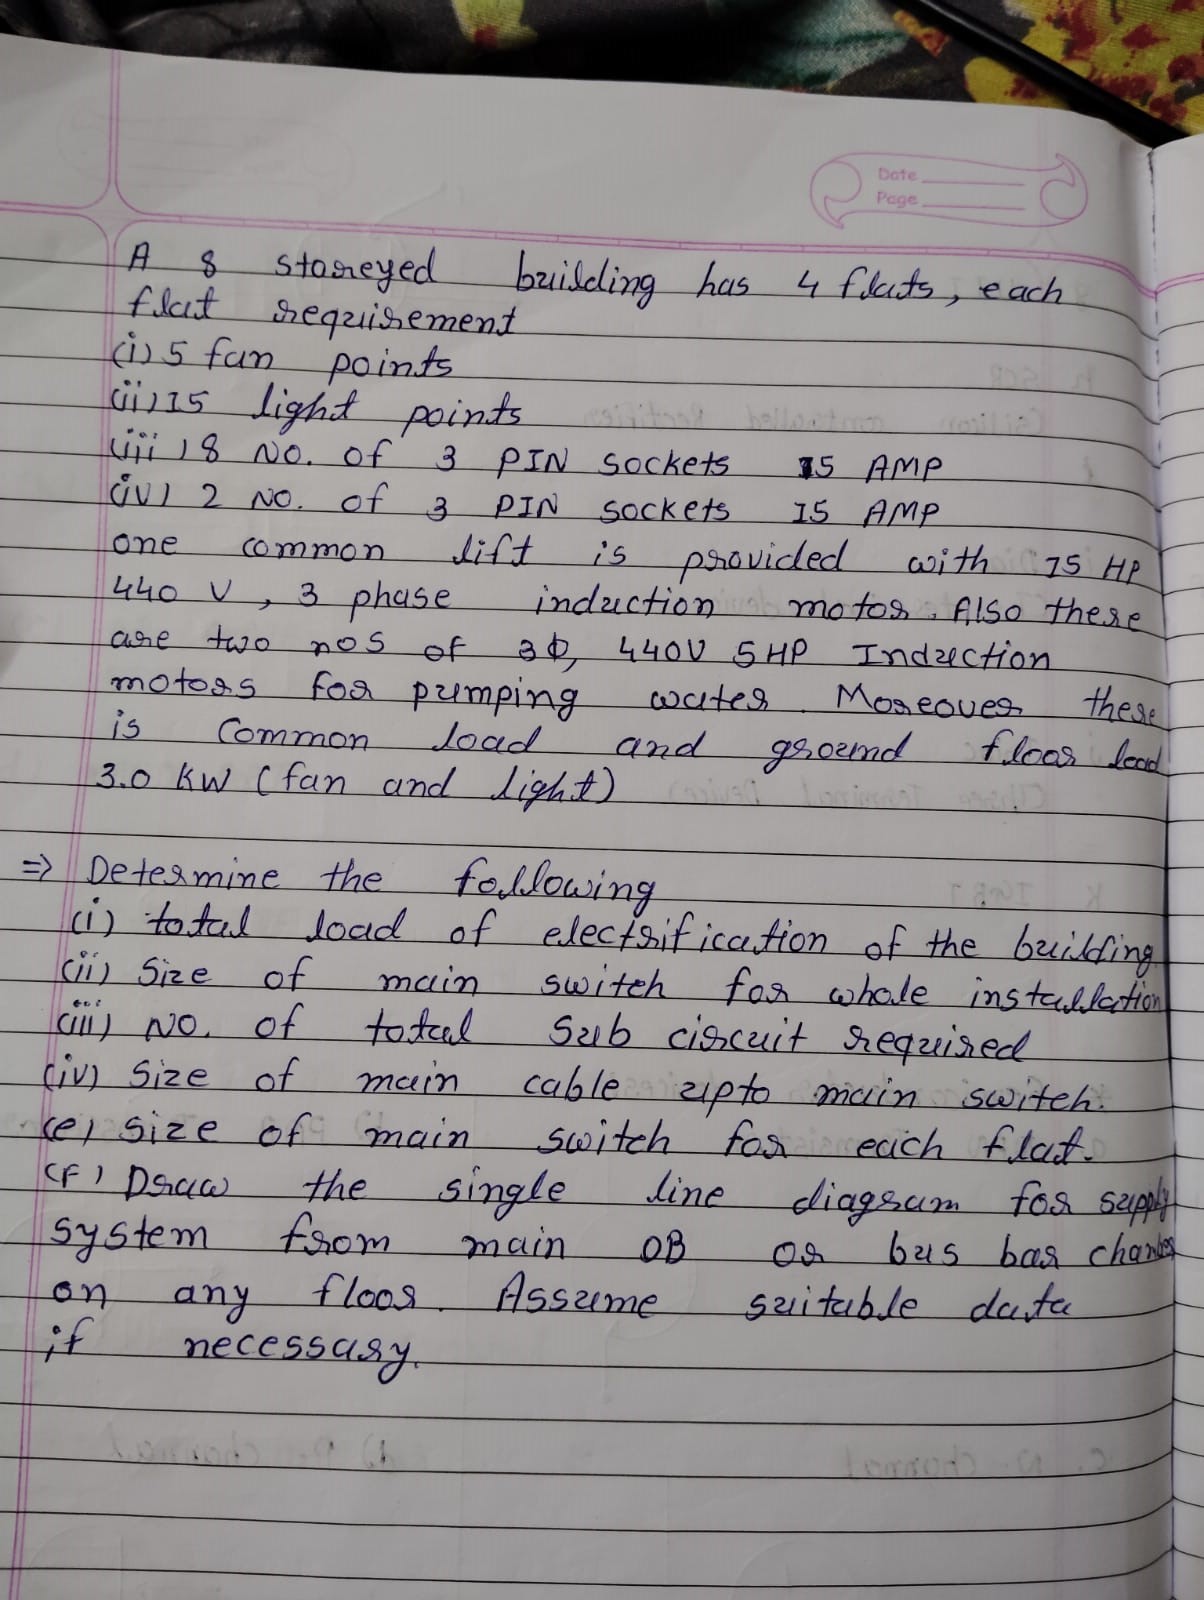 Date
Page
A 8 storeyed building has 4 flats, each
flat requirement
(i) 5 fan points
(ii) 15 light points
(iii) 8 NO. of 3 PIN sockets 5 AMP
(iv) 2 NO. of 3 PIN sockets 15 AMP
one common lift is provided with 15 HP
440 V, 3 phase induction motor. Also there
are two nos of 3Φ, 440V 5HP Induction
motors for pumping water. Moreover there
is common load and ground floor load
3.0 KW (fan and light)
⇒ Determine the following
(i) total load of electrification of the building
(ii) Size of main switch for whole installation
(iii) NO. of total sub circuit required
(iv) Size of main cable upto main switch.
(e) Size of main switch for each flat.
(F) Draw the single line diagram for supply
system from main DB or bus bar chamber
on any floor. Assume suitable data
if necessary.